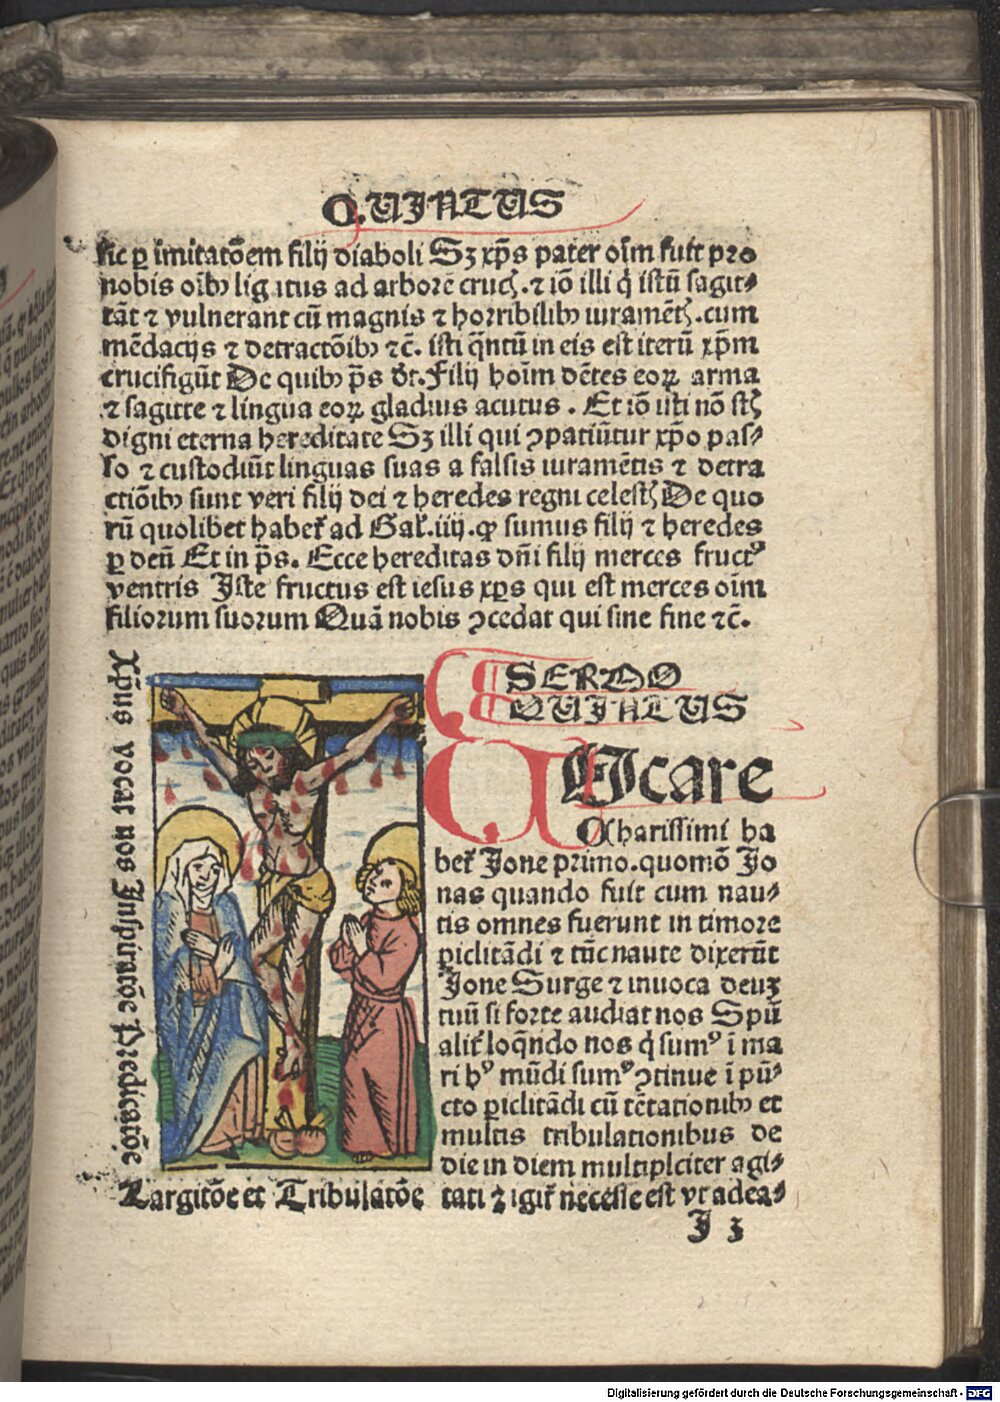 QUINTUS
sic ꝑ imitatōem filij diaboli Sꝫ xp̄s pater oīm fuit pro
nobis oībꝰ ligatus ad arborē crucꝭ. ⁊ iō illi q̇ istū sagit⸗
tāt ⁊ vulnerant cū magnis ⁊ horribilibꝰ iuramētꝭ. cum
mēdacijs ⁊ detractōibꝰ ⁊c̄. isti q̄ntū in eis est iterū xp̄m
crucifigūt De quibꝰ p̄s dr̄. Filij hoīm dētes eoꝝ arma
⁊ sagitte ⁊ lingua eoꝝ gladius acutus. Et iō isti nō st̄
digni eterna hereditate Sꝫ illi qui ꝯpatiūtur xp̄o pas⸗
so ⁊ custodiūt linguas suas a falsis iuramētis ⁊ detra
ctiōibꝰ sunt veri filij dei ⁊ heredes regni celestꝭ De quo
rū quolibet habet᷑ ad Gal᷑. iiij. ꝙ sumus filij ⁊ heredes
ꝑ deū Et in p̄s. Ecce hereditas dn̄i filij merces fructꝰ
ventris Iste fructus est iesus xp̄s qui est merces oīm
filiorum suorum Quā nobis ꝯcedat qui sine fine ⁊c̄.
Xp̄us vocat nos Inspiratōe Predicatōe
Largitōe et Tribulatōe
SERMO
QUINTUS
VOcare
Charissimi ha
bet᷑ Ione primo. quomō Io
nas quando fuit cum nau⸗
tis omnes fuerunt in timore
ꝑiclitādi ⁊ tūc naute dixerūt
Ione Surge ⁊ inuoca deuꝫ
tuū si forte audiat nos Spū
alit᷑ loq̄ndo nos q̇ sumꝰ ī ma
ri hꝰ mūdi sumꝰ ꝯtinue ī pū⸗
cto ꝑiclitādi cū tētationibꝰ et
multis tribulationibus de
die in diem multiplciter agi⸗
tati ⁊ igit᷑ necesse est vt adea⸗
I 3
Digitalisierung gefördert durch die Deutsche Forschungsgemeinschaft - DFG